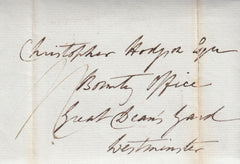 Christopher Hodgson Esqre
Bounty Office
Great Deans Yard
Westminster